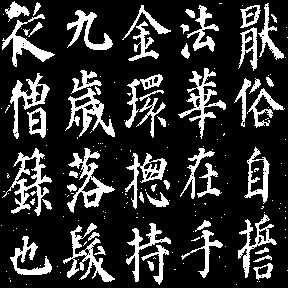 猒俗自誓
法華在手
金環揔持
九歲落髮
從僧籙也